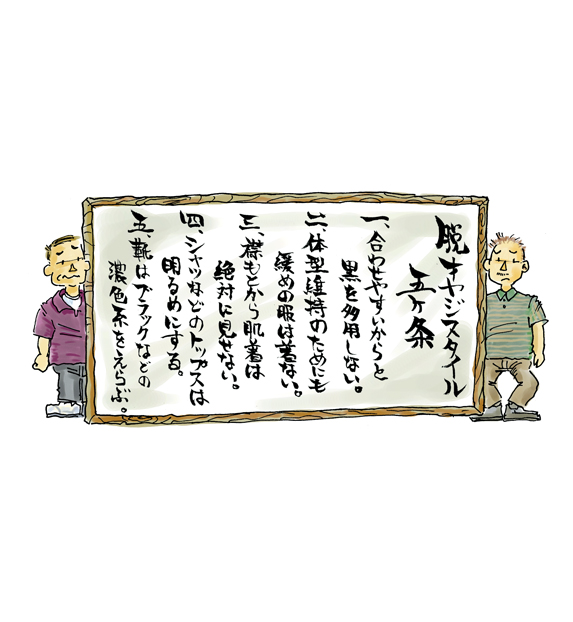 脱オヤジスタイル
五ヶ条
一、合わせやすいからと
黒を多用しない。
二、体型維持のためにも
緩めの服は着ない。
三、襟もとから肌着は
絶対に見せない。
四、シャツなどのトップスは
明るめにする。
五、靴はブラックなどの
濃色系をえらぶ。